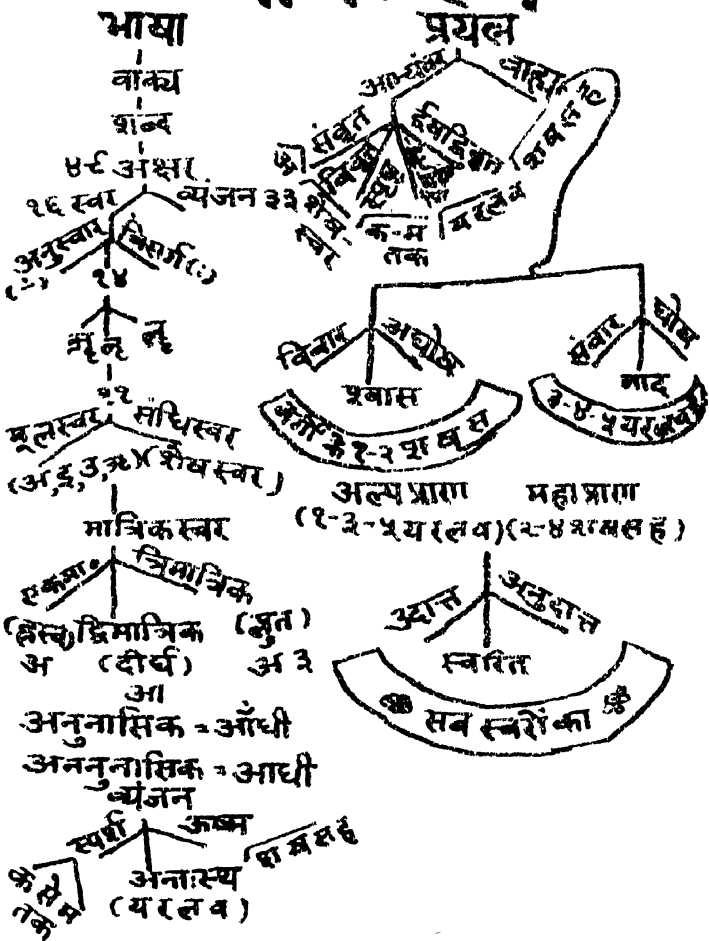 भाषा
वाक्य
शब्द
४९ अक्षर
१६ स्वर व्यंजन ३३
अनुस्वार विसर्ग (:)
(ं)
१४
ॠ ऌ ॡ
११
मूलस्वर संधिस्वर
(अ, इ, उ, ऋ) (शेष स्वर)
मात्रिक स्वर
एकमा॰ त्रिमात्रिक
(ह्रस्व) द्विमात्रिक (प्लुत)
अ (दीर्घ) अ ३
आ
अनुनासिक = आँधी
अननुनासिक = आधी
व्यंजन
स्पर्श ऊष्म
क से म तक
अन्तःस्थ
(य र ल व)
श ष स ह
प्रयत्न
आभ्यंतर बाह्य
संवृत विवृत स्पृष्ट ईषद्विवृत
अ
शेष स्वर
क-म तक
य र ल व
श ष स ह
विवार अघोष
श्वास
वर्गों के १-२ श ष स
संवार घोष
नाद
३-४-५ य र ल व ह
अल्पप्राण महाप्राण
(१-३-५ य र ल व) (२-४ श ष स ह)
उदात्त अनुदात्त
स्वरित
सब स्वरों का